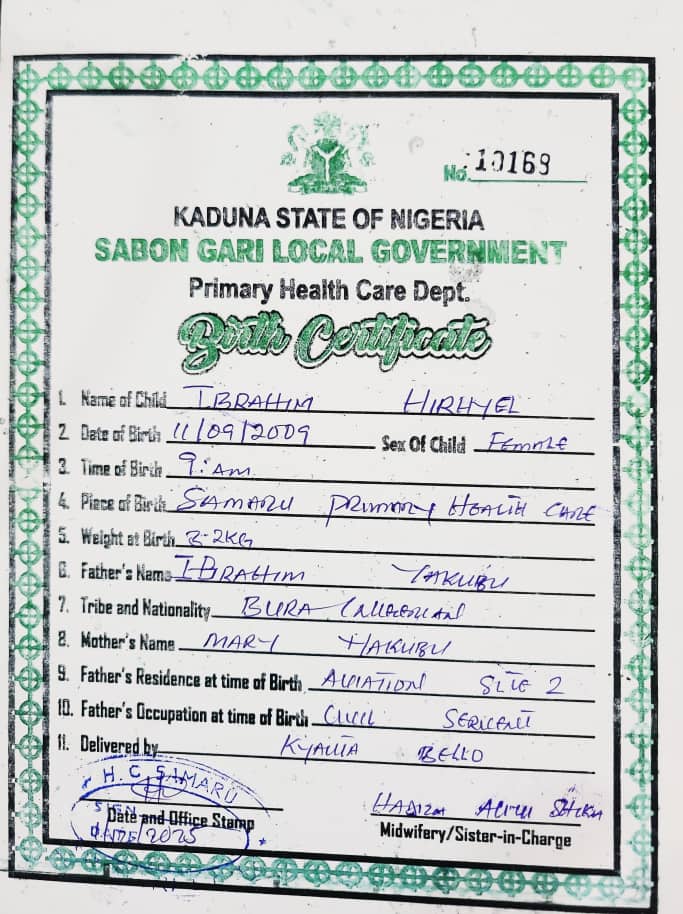 No. 10168
KADUNA STATE OF NIGERIA
SABON GARI LOCAL GOVERNMENT
Primary Health Care Dept.
Birth Certificate
1. Name of Child IBRAHIM HIRHYEL
2. Date of Birth 11/09/2009 Sex Of Child FEMALE
3. Time of Birth 9:AM
4. Place of Birth SAMARU PRIMARY HEALTH CARE
5. Weight at Birth 3-2KG
6. Father's Name IBRAHIM YAKUBU
7. Tribe and Nationality BURA
8. Mother's Name MARY YAKUBU
9. Father's Residence at time of Birth AVIATION SITE 2
10. Father's Occupation at time of Birth CIVIL SERVENT
11. Delivered by BELLO
H. C. SAMARU
SIGN
DATE /2025
Date and Office Stamp
HADIZA ALIYU
Midwifery/Sister-in-Charge